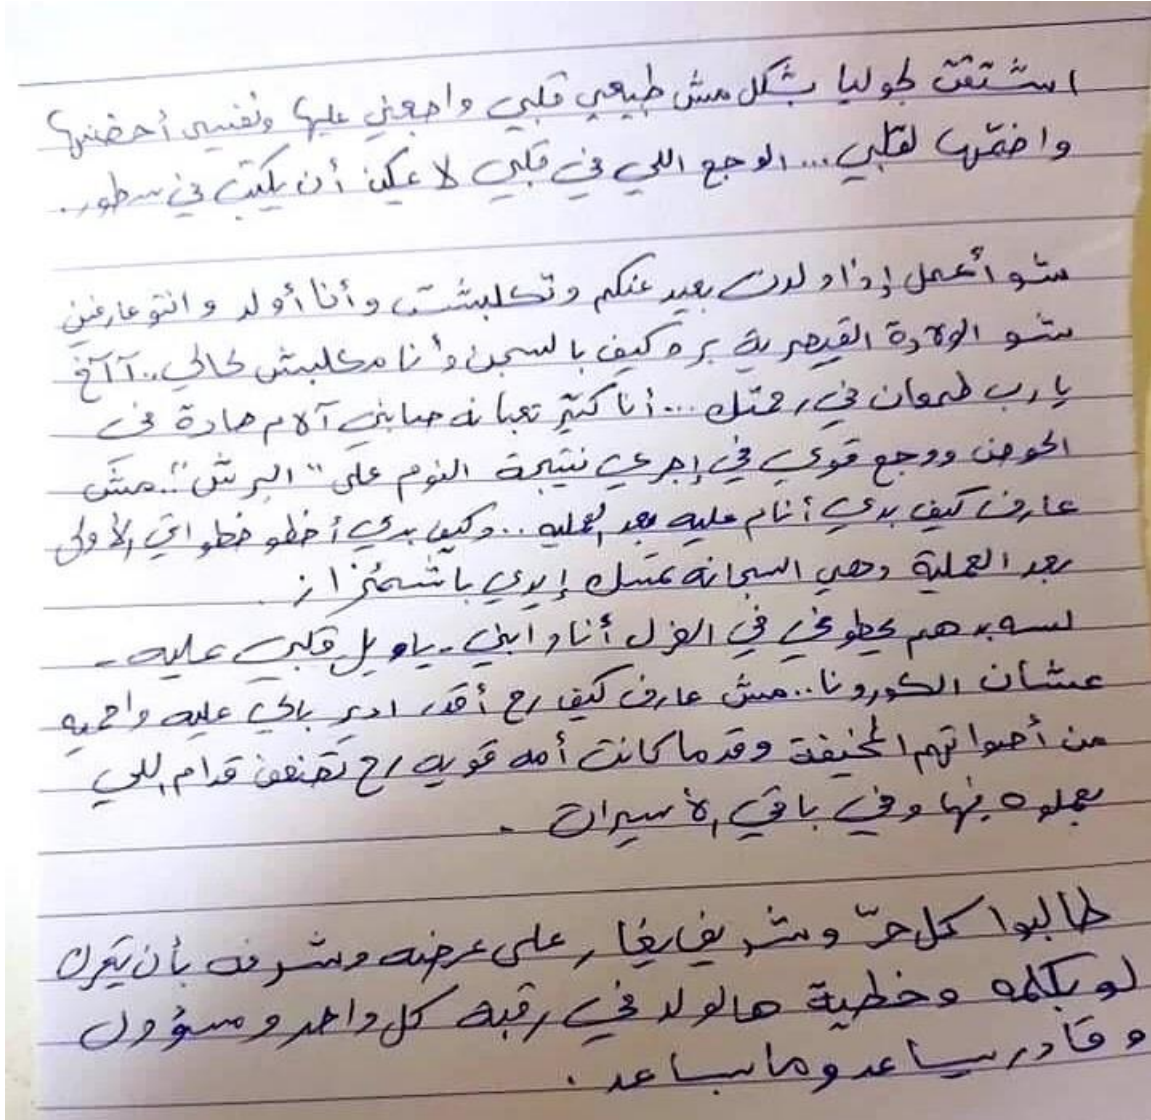 اشتقت لجوليا بشكل مش طبيعي قلبي واجعني عليها ونفسي أحضنها
واضمّها لقلبي... الوجع اللي في قلبي لا يمكن أن يكتب في سطور.
شو أعمل إذا ولدت بعيد عنكم وتكلبشت وأنا أولد وانتو عارفين
شو الولادة القيصرية بره كيف بالسجن وأنا مكلبش لحالي.. آآخ
يا رب طمعان في رحمتك... أنا كتير تعبانه صابني آلام حادة في
الحوض ووجع قوي في إجري نتيجة النوم على "البرش".. مش
عارف كيف بدي أنام عليه بعد العمليه.. وكيف بدي أخطو خطواتي الأولى
بعد العملية وهي السجانه تمسك إيدي باشمئزاز.
لسه بدهم يحطوني في العزل أنا وابني - ياويل قلبي عليه -
عشان الكورونا.. مش عارف كيف رح أقدر ادير بالي عليه واحميه
من أصواتهم المخيفة وقد ما كانت أمه قويه رح تضعف قدام اللي
بعملوه فيها وفي باقي الأسيرات.
طالبوا كل حرّ وشريف يغار على عرضه وشرفه بأن يتحرك
لو بكلمه وخطية هالولد في رقبه كل واحد ومسؤول
وقادر يساعد وما يساعد.